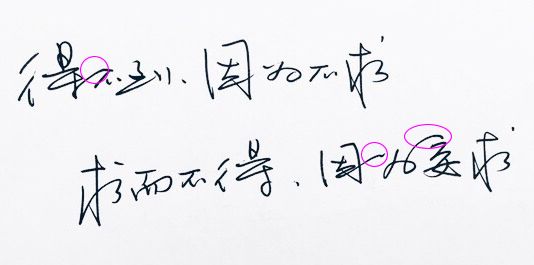 得不到、因为不求
求而不得、因为妄求